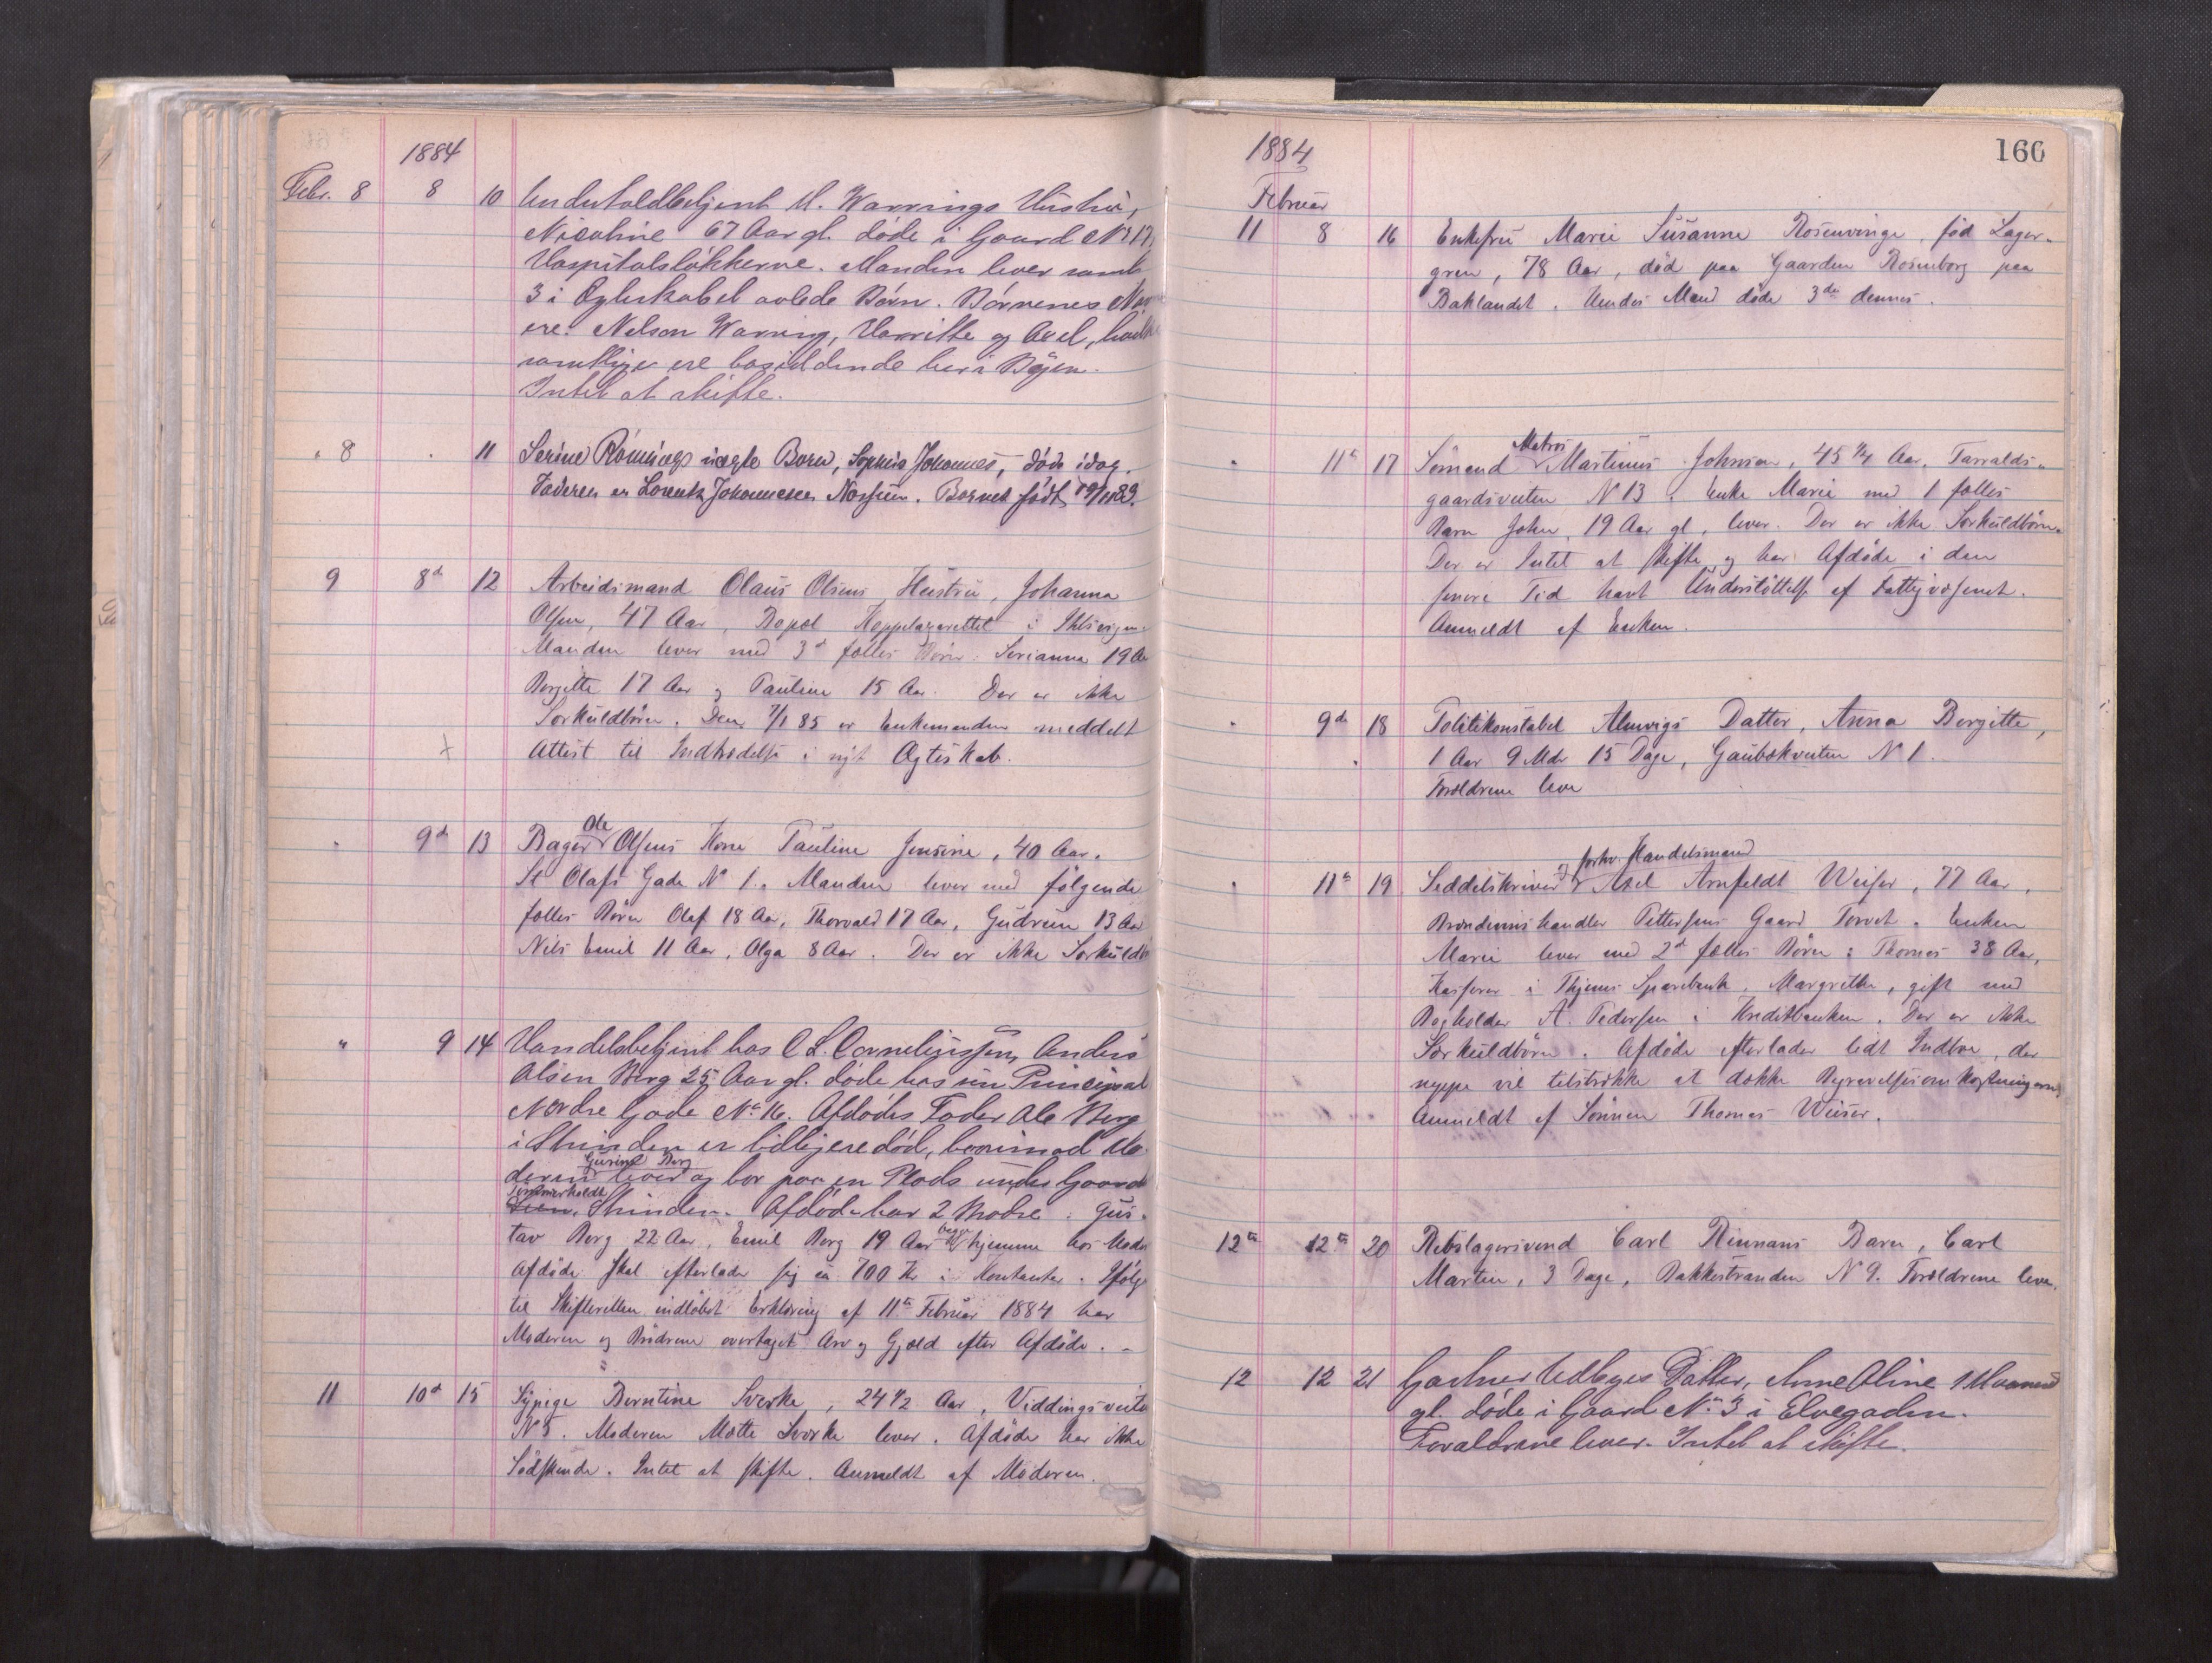 1884
Febr. 8 8 10 Undertoldbetjent M. Warrings Hustru,
Nicoline 67 Aar gl. døde i Gaard No 17
Hospitalsløkkerne. Manden lever samt
3 i Egteskabet avlede Børn. Børnenes Nav
ere: Nelson Warring, Harritte og Axel, hvilke
samtlige ere bosiddende her i Byen.
Intet at skifte.
" 8 " 11 Serine Rønnings uægte Barn, Sophus Johannes, døde idag.
Faderen er Lorentz Johannesen Nossum. Barnet født 19/11 83.
9 8d 12 Arbeidsmand Olaus Olsens Hustru, Johanna
Olsen, 47 Aar, Bopæl Koppelazarettet i Ihlsvigen.
Manden lever med 3d fælles Børn: Serianna 19 Aa
Bergitte 17 Aar og Pauline 15 Aar. Der er ikke
Særkuldbørn. Den 7/1 85 er Enkemanden meddelt
+ Attest til Indtrædelse i nyt Ægteskab.
" 9de 13 Bager Ole Olsens Kone Pauline Jensine, 40 Aar.
St Olafs Gade No 1. Manden lever med følgende
fælles Børn Olaf 18 Aar, Thorvald 17 Aar, Gudrun 13 Aar
Nils Emil 11 Aar, Olga 8 Aar. Der er ikke Særkuldb
" 9 14 Handelsbetjent hos C L. Corneliussen, Anders
Olsen Berg 25 Aar gl. døde hos sin Principal
Nordre Gade No 16. Afdødes Fader Ole Berg
i Strinden er tidligere død, hvorimod Mo-
deren Gurine Berg lever og bor paa en Plads under Gaard
Tommerholdt Strinden. Afdøde har 2 Brødre: Gus-
tav Berg 22 Aar, Emil Berg 19 Aar begge hjemme hos Mode
Afdøde skal efterlade sig ca 700 Kr i Kontanter. Ifølge
til Skifteretten indløbet Erklæring af 11te Februar 1884 har
Moderen og Brødrene overtaget Arv og Gjæld efter Afdøde. -
11 10d 15 Sypige Berntine Sverke, 24 1/2 Aar, Viddingsveite
N 5. Moderen Mette Sverke lever. Afdøde har ikke
Sødskende. Intet at skifte. Anmeldt af Moderen.
1884 160
Februar
11 8 16 Enkefru Marie Susanne Rosenvinge, fød Lager-
gren, 78 Aar, død paa Gaarden Rosenborg paa
Baklandet. Hendes Mand døde 3de dennes.
" 11te 17 Sømand Matros Martinus Johnsen, 45 1/4 Aar, Tarralds-
gaardsveiten N 13. Enke Marie med 1 fælles
Barn John, 19 Aar gl, lever. Der er ikke Særkuldbørn.
Der er Intet at skifte og har Afdøde i den
senere Tid havt Understøttelse af Fattigvæsenet.
Anmeldt af Enken.
" 9de 18 Politikonstabel Almvigs Datter, Anna Bergitte,
1 Aar 9 Mdr 15 Dage, Gaubækveiten N 1.
Forældrene leve
" 11te 19 Seddelskriver og forhv. Handelsmand Axel Arnfeldt Weiser, 77 Aar,
Brændevinshandler Pettersens Gaard Torvet. Enken
Marie lever med 2d fælles Børn: Thomas 38 Aar,
Kasserer i Thjems Sparebank, Margrethe, gift med
Bogholder A. Pedersen i Kreditbanken. Der er ikke
Særkuldbørn. Afdøde efterlader lidt Indbo, der
neppe vil tilstrække at dække Begravelsesomkostningerne
Anmeldt af Sønnen Thomas Weiser.
12te 12te 20 Rebslagersvend Carl Rinnans Barn, Carl
Martin, 3 Dage, Bakkestranden N 9. Forældrene leve.
12 12 21 Gartner Udbyes Datter, Anne Oline 1 Maaned
gl. døde i Gaard No 3 i Elvegaden.
Forældrene lever. Intet at skifte.